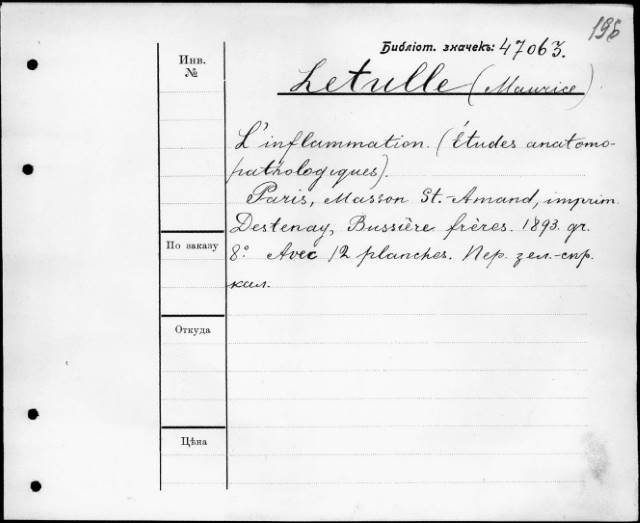 196
Библіот. значекъ: 47063.
Инв.
№
Letulle (Maurice)
L'inflammation. (Études anatomo-
pathologiques).
Paris, Masson St.-Amand, imprim.
Destenay, Bussière frères. 1893. gr.
8º Avec 12 planches. Пер. зел.-сыр.
кал.
По заказу
Откуда
Цѣна